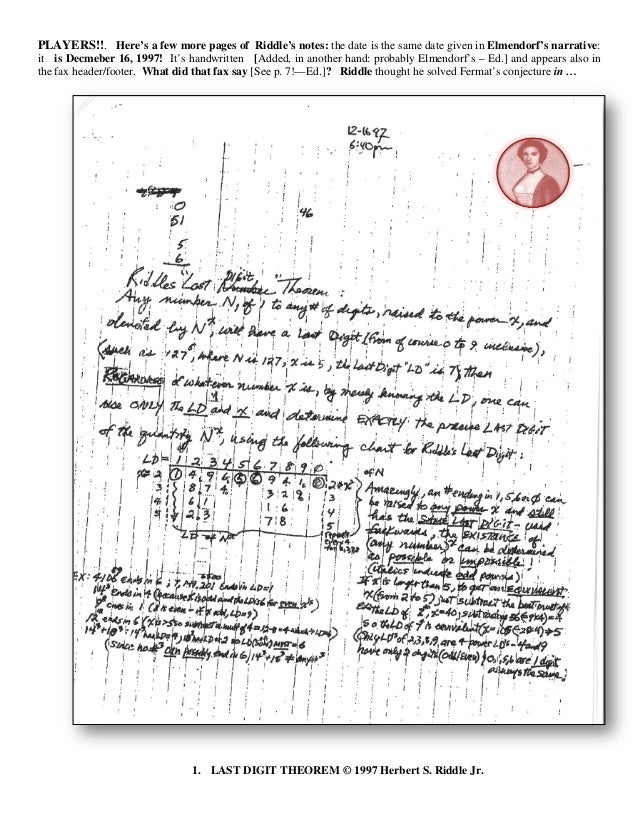 PLAYERS!!. Here's a few more pages of Riddle's notes: the date is the same date given in Elmendorf's narrative:
it is Decmeber 16, 1997! It's handwritten [Added, in another hand: probably Elmendorf's – Ed.] and appears also in
the fax header/footer. What did that fax say [See p. 7!—Ed.]? Riddle thought he solved Fermat's conjecture in …
12-16 97
6:40pm
0
51
46
5
6
Riddles "Last Digit" Theorem:
Any number N, of 1 to any # of digits, raised to the power x, and
denoted by Nˣ, will have a Last Digit (from of course 0 to 9 inclusive),
(such as 127⁵, where N is 127, x is 5, the Last Digit "LD" is 7) then
REGARDLESS of whatever number x is, by merely knowing the LD, one can
use ONLY the LD and x and determine EXACTLY the precise LAST DIGIT
of the quantity Nˣ, using the following chart for Riddle's Last Digit:
LD= 1 2 3 4 5 6 7 8 9 0 of N
x= 2 1 4 9 6 5 6 9 4 1 0
3 8 7 4 3 2 9 3
4 6 1 1 6 4
5 2 3 7 8 5
LD of Nˣ
Amazingly, an # ending in 1, 5, 6 or 0 can
be raised to any power x and still
has the SAME LAST DIGIT – used
backwards, the EXISTANCE of
(any number)ˣ can be determined
as possible or impossible!
(italics indicate odd powers)
If x is larger than 5, to get an EQUIVALENT
x (from 2 to 5) just subtract the best mult of 4
so the LD of 7 is equivalent
(Only LD of 2,3,8,9 are 4 power LD's – 4 and 9
have only 2 digits (odd/even) 0,1,5,6 are 1 digit
always the same!
EX: 4106 ends in 6; ends in LD=1
ends in 4 (because
ends in 1
12 ends in 6
(since
1. LAST DIGIT THEOREM © 1997 Herbert S. Riddle Jr.